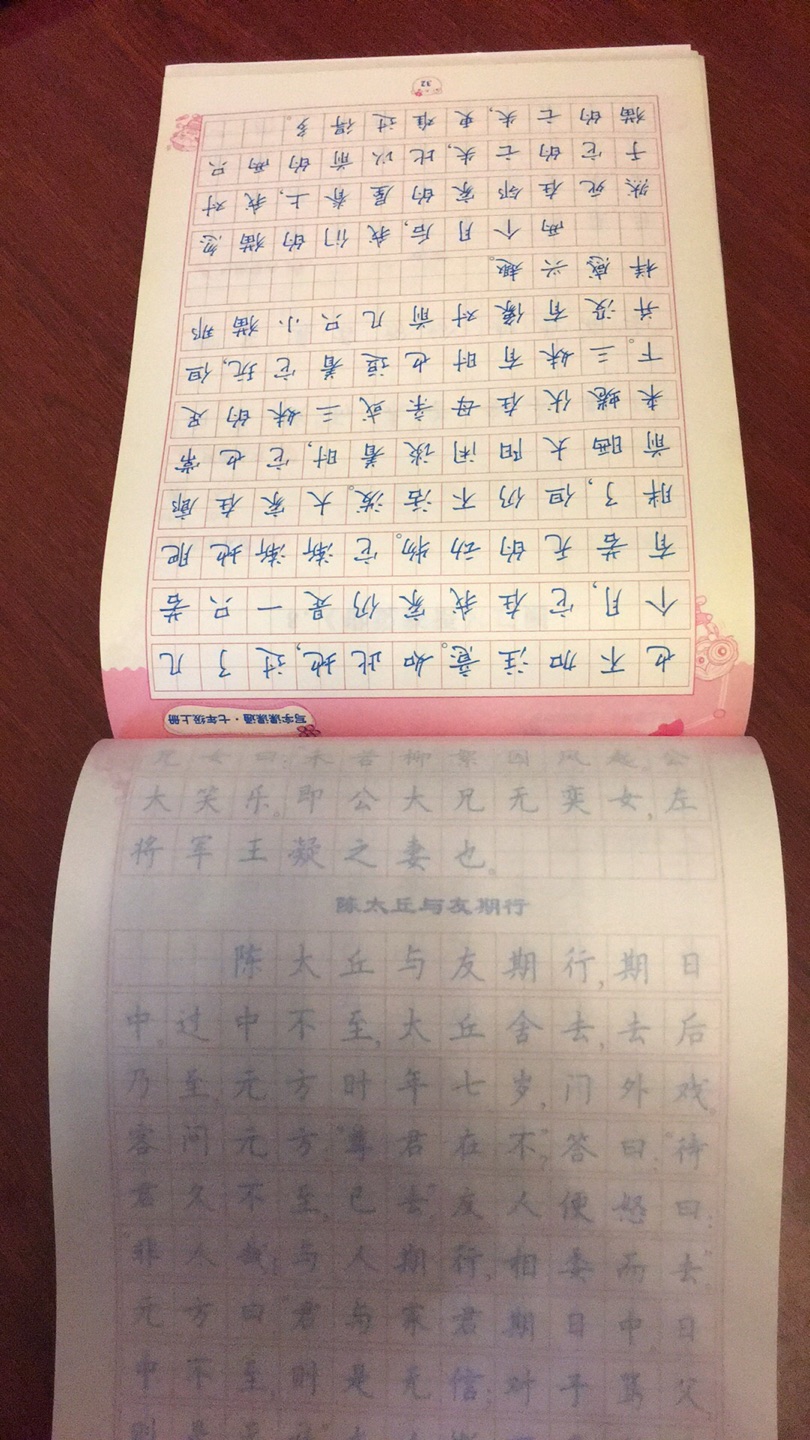 写字课课通·七年级上册
也不加注意。如此地,过了几
个月,它在我家仍是一只若
有若无的动物。它渐渐地肥
胖了,但仍不活泼。大家在廊
前晒太阳闲谈着时,它也常
来蜷伏在母亲或三妹的足
下。三妹有时也逗着它玩,但
并没有像对前几只小猫那
样感兴趣。
两个月后,我们的猫忽
然死在邻家的屋脊上,我对
于它的亡失,比以前的两只
猫的亡失,更难过得多。
32
兄女曰:未若柳絮因风起。公
大笑乐。即公大兄无奕女,左
将军王凝之妻也。
陈太丘与友期行
陈太丘与友期行,期日
中。过中不至,太丘舍去,去后
乃至。元方时年七岁,门外戏。
客问元方:"尊君在不?"答曰:"待
君久不至,已去。"友人便怒曰:
"非人哉!与人期行,相委而去。"
元方曰:"君与家君期日中。日
中不至,则是无信;对子骂父,